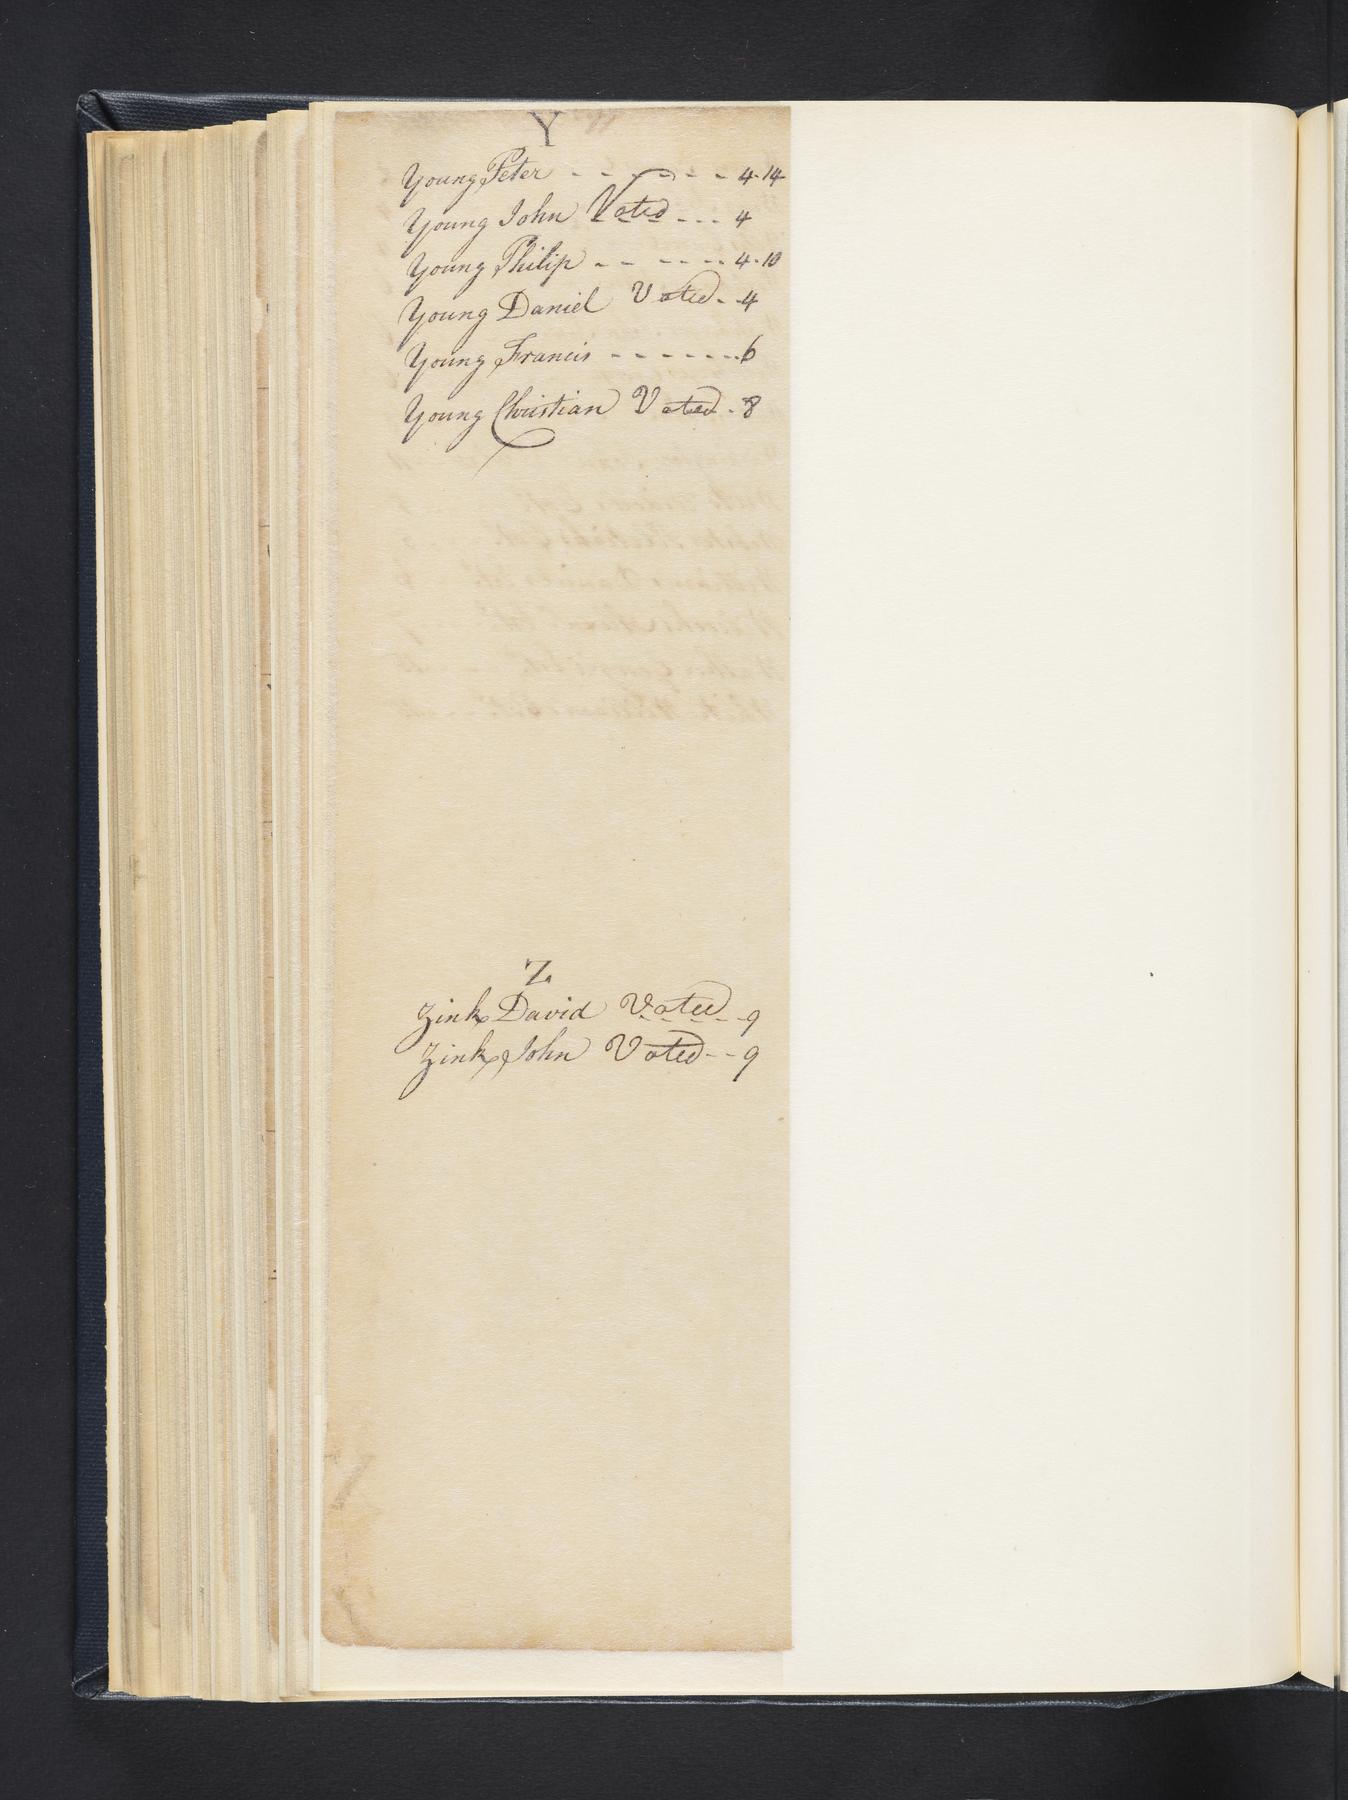 Y
Young Peter - - - - - - 4.14
Young John Voted - - - 4
Young Philip - - - - - - 4.10
Young Daniel Voted - - 4
Young Francis - - - - - - - 6
Young Christian Voted - 8
Z
Zink David Voted - - 9
Zink John Voted - - 9